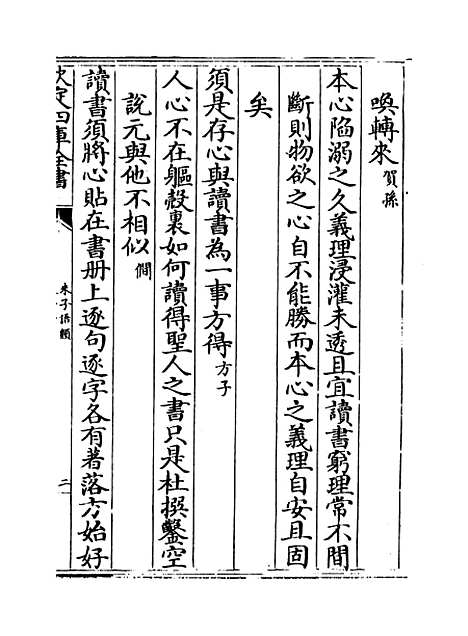 喚轉來賀孫
本心陷溺之久義理浸灌未透且宜讀書窮理常不間
斷則物欲之心自不能勝而本心之義理自安且固
矣
須是存心與讀書為一事方得方子
人心不在軀殼裏如何讀得聖人之書只是杜撰鑿空
說元與他不相似僩
讀書須將心貼在書册上逐句逐字各有著落方始好
欽定四庫全書
朱子語類
二